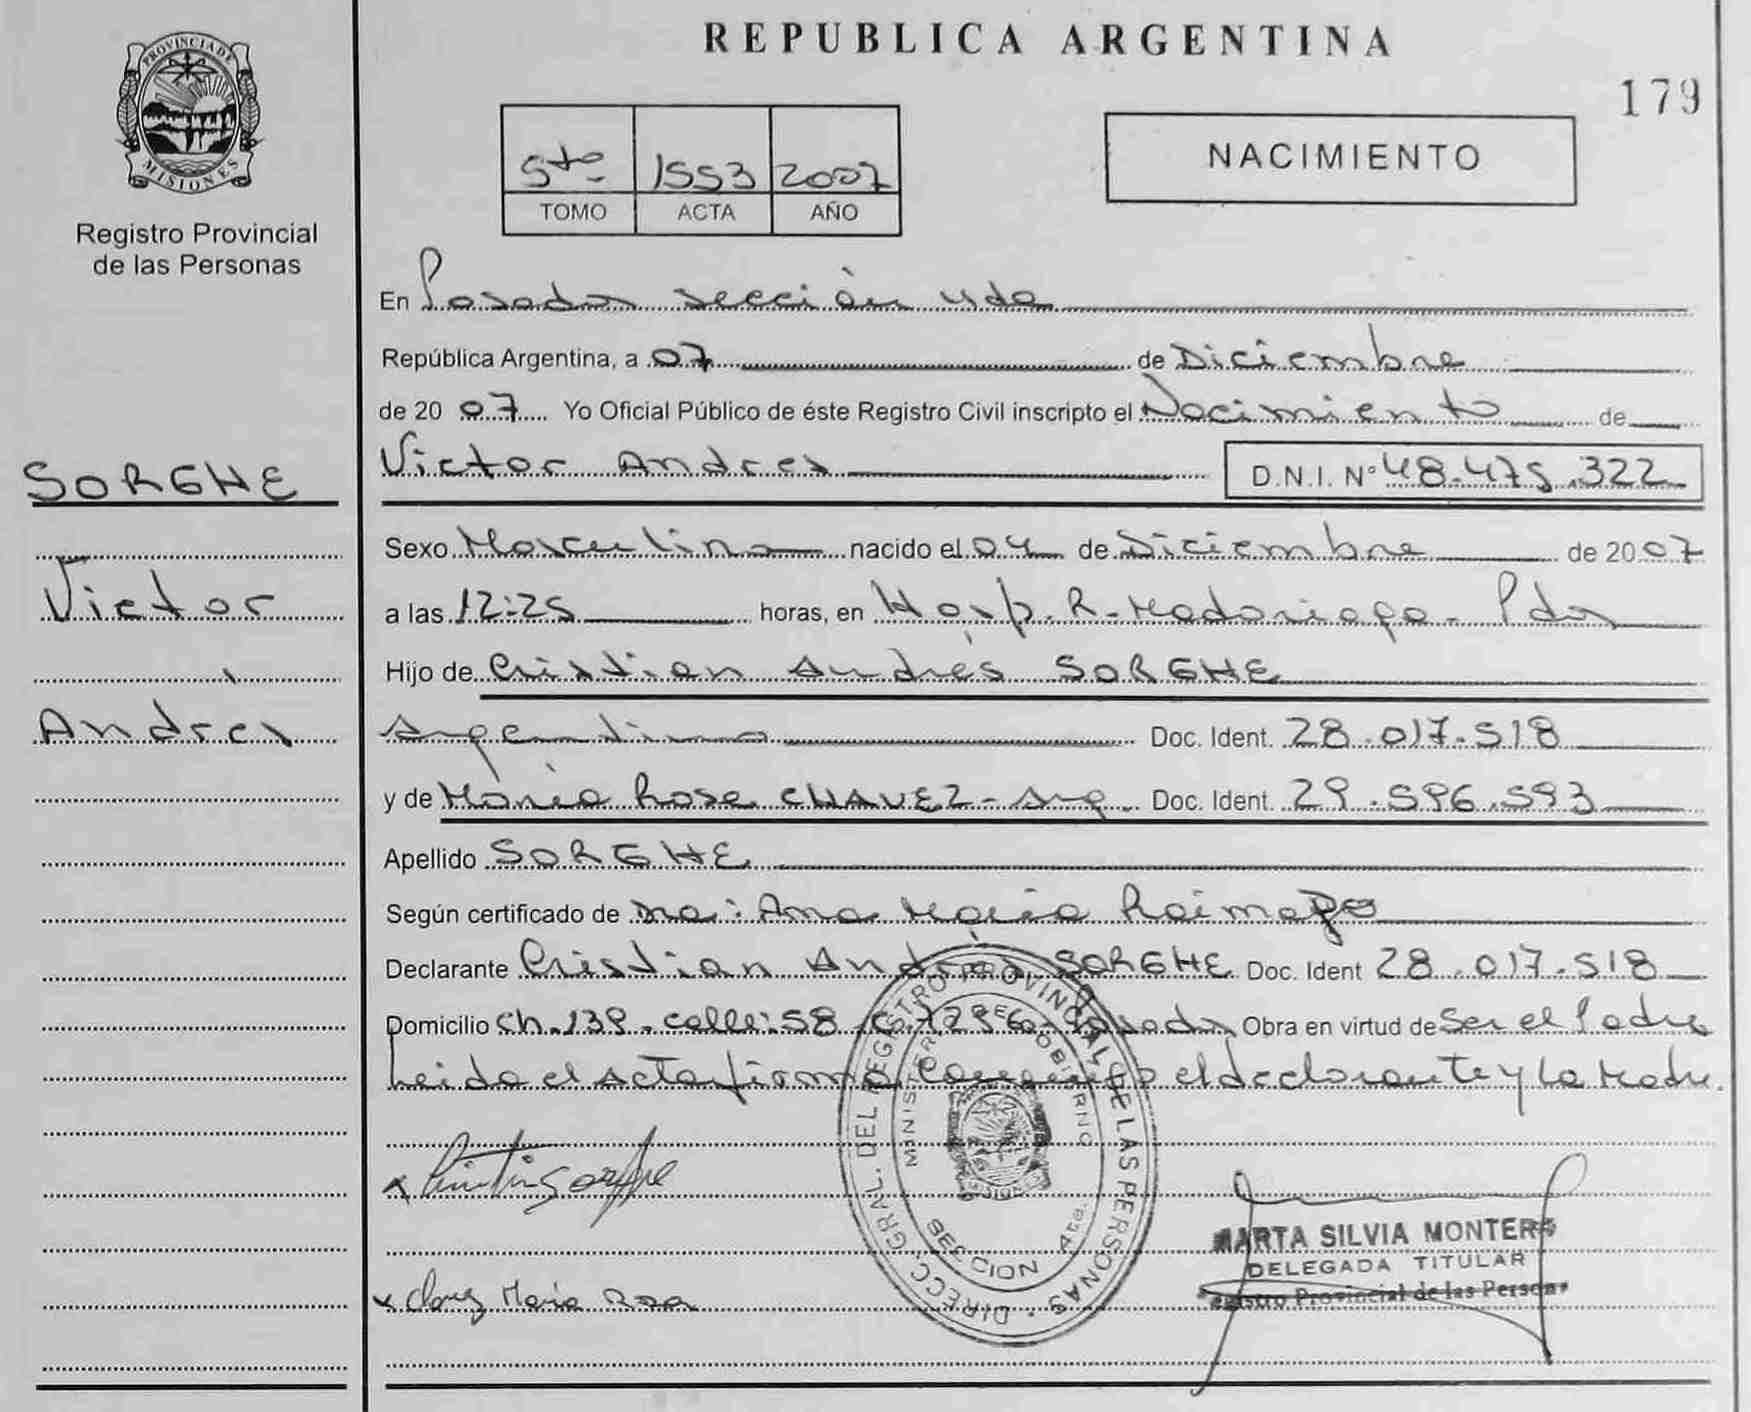 PROVINCIA DE
MISIONES
Registro Provincial
de las Personas
SORGHE
Victor
Andrés
REPUBLICA ARGENTINA
179
5to 1553 2007
TOMO ACTA AÑO
NACIMIENTO
En Posadas sección 4da
República Argentina, a 07 de Diciembre
de 2007 Yo Oficial Público de éste Registro Civil inscripto el Nacimiento de
Victor Andres D.N.I. Nº 48.475.322
Sexo Masculino nacido el 04 de Diciembre de 2007
a las 12:25 horas, en Hosp. R. Madariaga - Pdas
Hijo de Cristian Andrés SORGHE
Argentino Doc. Ident. 28.017.518
y de María Rosa CHAVEZ - Arg. Doc. Ident. 29.596.593
Apellido SORGHE
Según certificado de Ana María
Declarante Cristian Andrés SORGHE Doc. Ident 28.017.518
Domicilio Ch. 139. calle: 58 Posadas Obra en virtud de Ser el Padre
Leida el Acta firma Conmigo el declarante y La Madre.
DIRECC. GRAL. DEL REGISTRO PROVINCIAL DE LAS PERSONAS
MINISTERIO DE GOBIERNO
MISIONES
SECCION 4ta.
x Chavez María Rosa
MARTA SILVIA MONTERO
DELEGADA TITULAR
Registro Provincial de las Personas